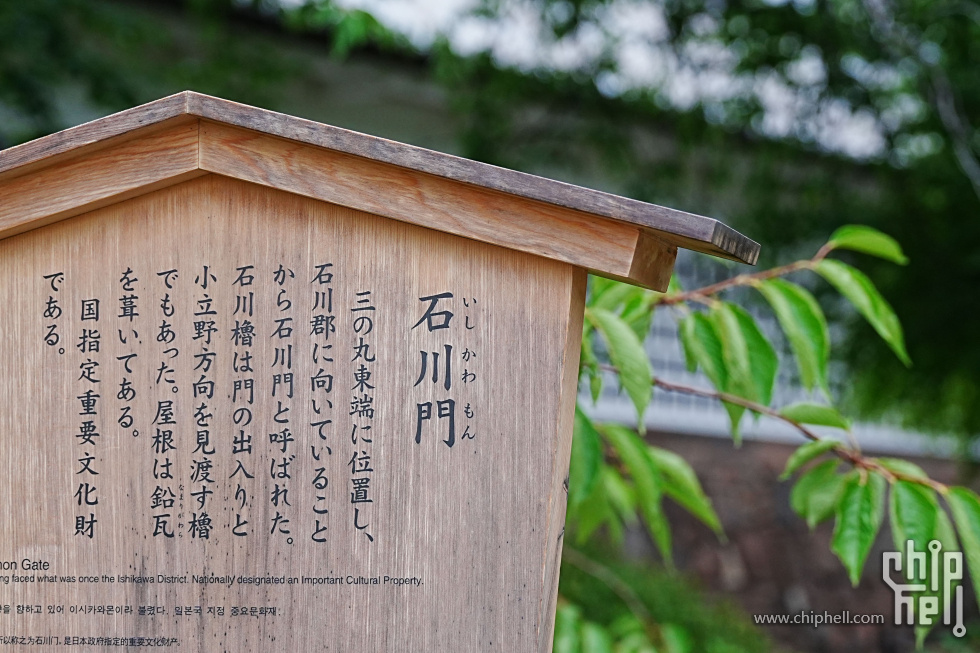 石川門
いしかわもん
三の丸東端に位置し、
石川郡に向いていること
から石川門と呼ばれた。
石川櫓は門の出入りと
小立野方向を見渡す櫓
でもあった。屋根は鉛瓦
なまりがわら
を葺いてある。
国指定重要文化財
である。
Gate
faced what was once the Ishikawa District. Nationally designated an Important Cultural Property.
향하고 있어 이시카와몬이라 불렸다. 일본국 지정 중요문화재.
所以称之为石川门。是日本政府指定的重要文化财产。
www.chiphell.com
chip
hell